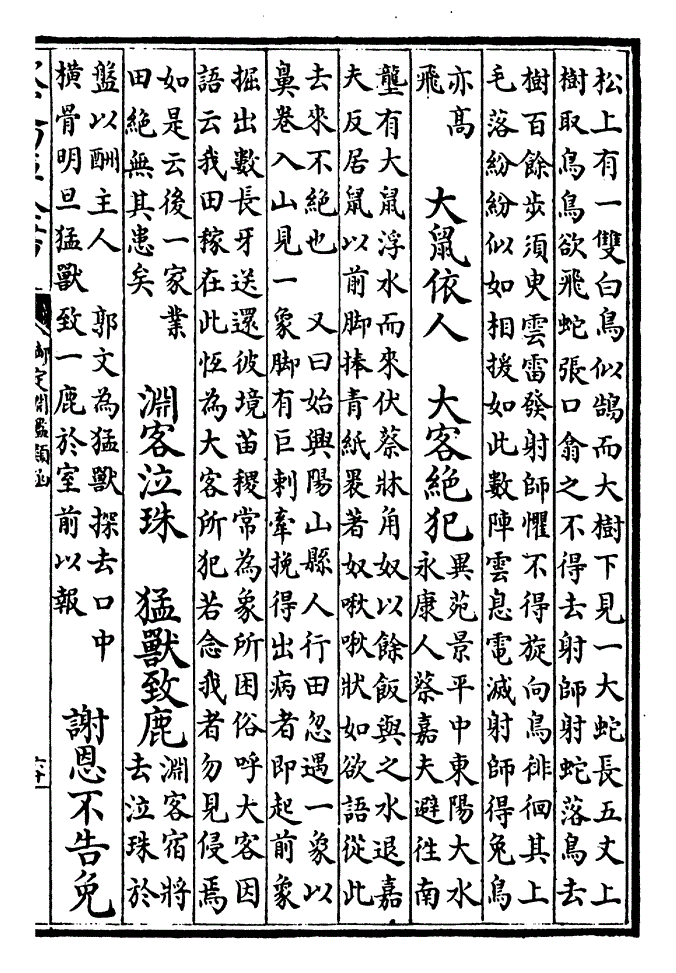 松上有一雙白鳥似鵠而大樹下見一大蛇長五丈上
樹取鳥鳥欲飛蛇張口翕之不得去射師射蛇落鳥去
樹百餘步須臾雲雷發射師懼不得旋向鳥徘徊其上
毛落紛紛似如相援如此數陣雲息電滅射師得免鳥
亦髙
飛
大鼠依人　大客絶犯
異苑景平中東陽大水
永康人蔡嘉夫避住南
壟有大鼠浮水而來伏蔡牀角奴以餘飯與之水退嘉
夫反居鼠以前脚捧青紙裹著奴啾啾狀如欲語從此
去來不絶也　又曰始興陽山縣人行田忽遇一象以
鼻卷入山見一象脚有巨刺牽挽得出病者即起前象
掘出數長牙送還彼境苗稷常為象所困俗呼大客因
語云我田稼在此恆為大客所犯若念我者勿見侵焉
如是云後一家業
田絶無其患矣
淵客泣珠　猛獸致鹿
淵客宿將
去泣珠於
盤以酬主人　郭文為猛獸探去口中
横骨明旦猛獸致一鹿於室前以報
謝恩不告免
御定淵鑑類函